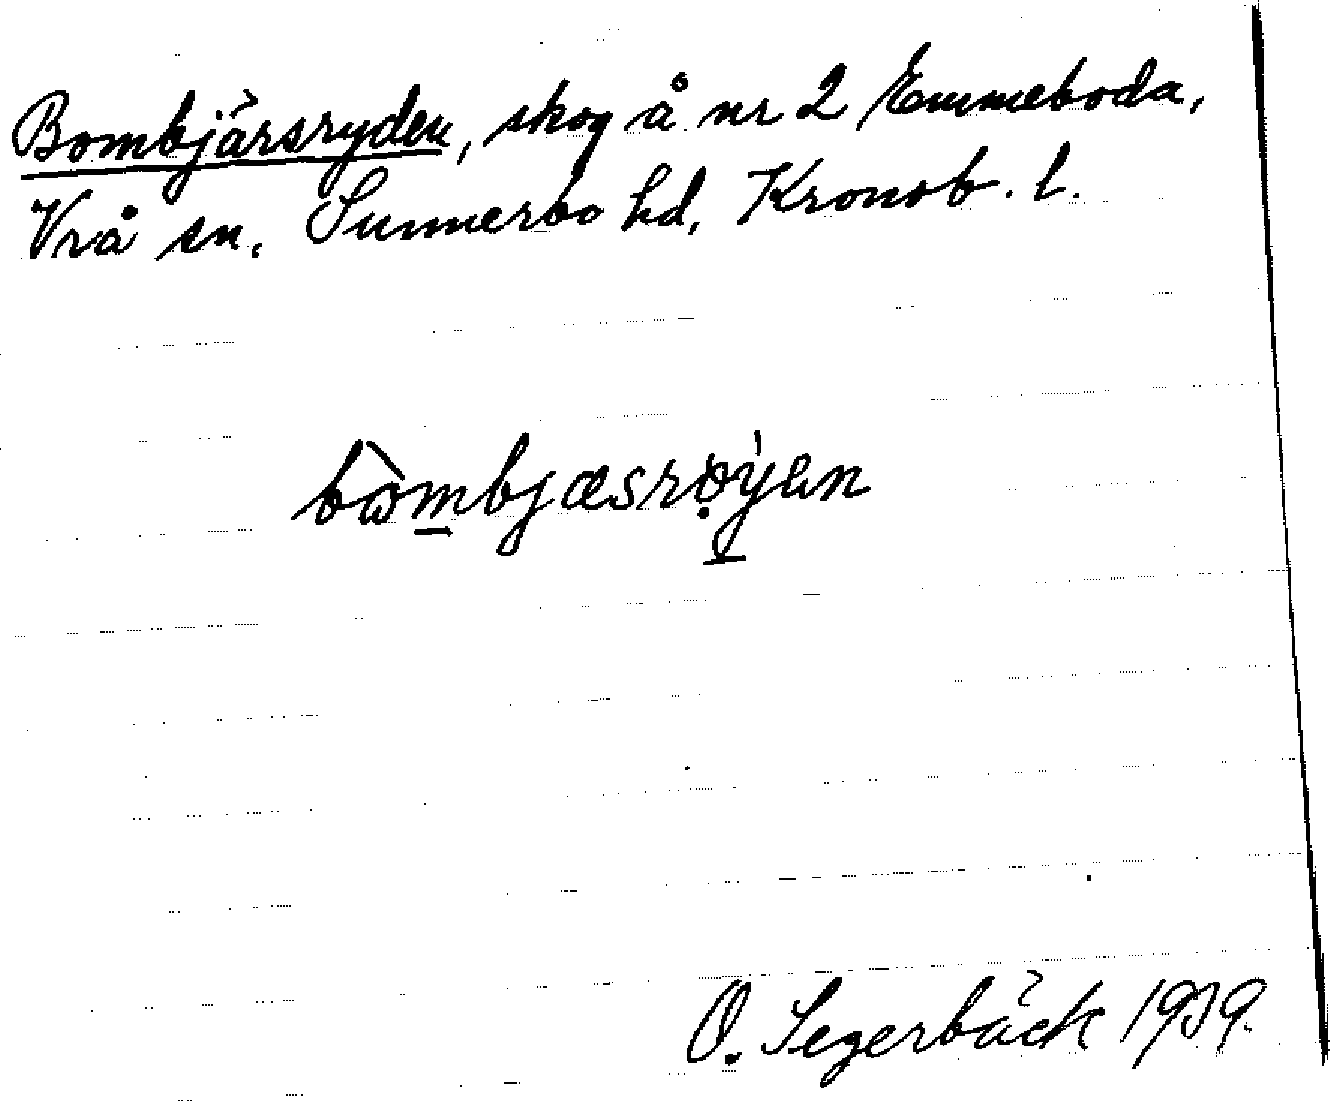 Bombjärsryden, skog å nr 2 Emmeboda,
Vrå sn, Sunnerbo hd, Kronob. l.
bòmbjæsrø̣ýen
O. Segerbäck 1939.